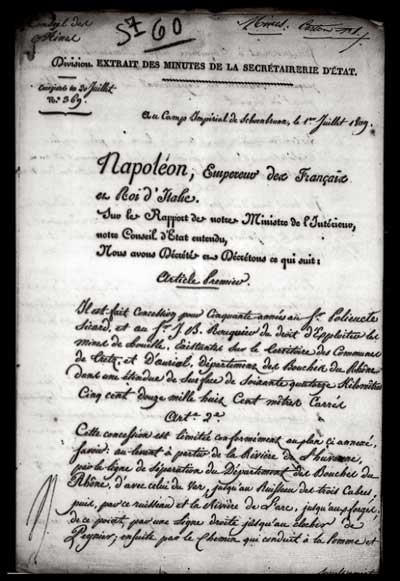 Conseil des
Mines
57 60
Mines.
Division. EXTRAIT DES MINUTES DE LA SECRÉTAIRERIE D'ÉTAT.
20 Juillet
N.° 369.
Au Camp Impérial de Schonbrunn, le 1er Juillet 1809.
Napoléon, Empereur des Français
et Roi d'Italie.
Sur le Rapport de notre Ministre de l'Intérieur,
notre Conseil d'Etat entendu,
Nous avons Décrété et Décrétons ce qui suit:
Article Premier.
Il est fait Concession pour Cinquante années au Sr. Polieucte
Sicard, et au Sr. J. B. Rouquier du droit d'Exploiter les
mines de houille, existantes sur le Territoire des Communes
de Trets et D'auriol, département des Bouches du Rhône
dans une étendue de surface de Soixante quatorze Kilomètres
Cinq cent douze mille huit Cent mètres Carrés
Art. 2e.
Cette concession est limitée conformément au plan ci annexé,
savoir: au levant à partir de la Rivière de
par la ligne de séparation du Département des Bouches du
Rhône, d'avec celui du Var, jusqu'au Ruisseau des trois Cabres,
puis, par ce ruisseau et la Rivière de l'arc, jusqu'au
de ce point, par une ligne droite jusqu'au clocher de
Peynier; ensuite par le Chemin qui conduit à la Pomme et